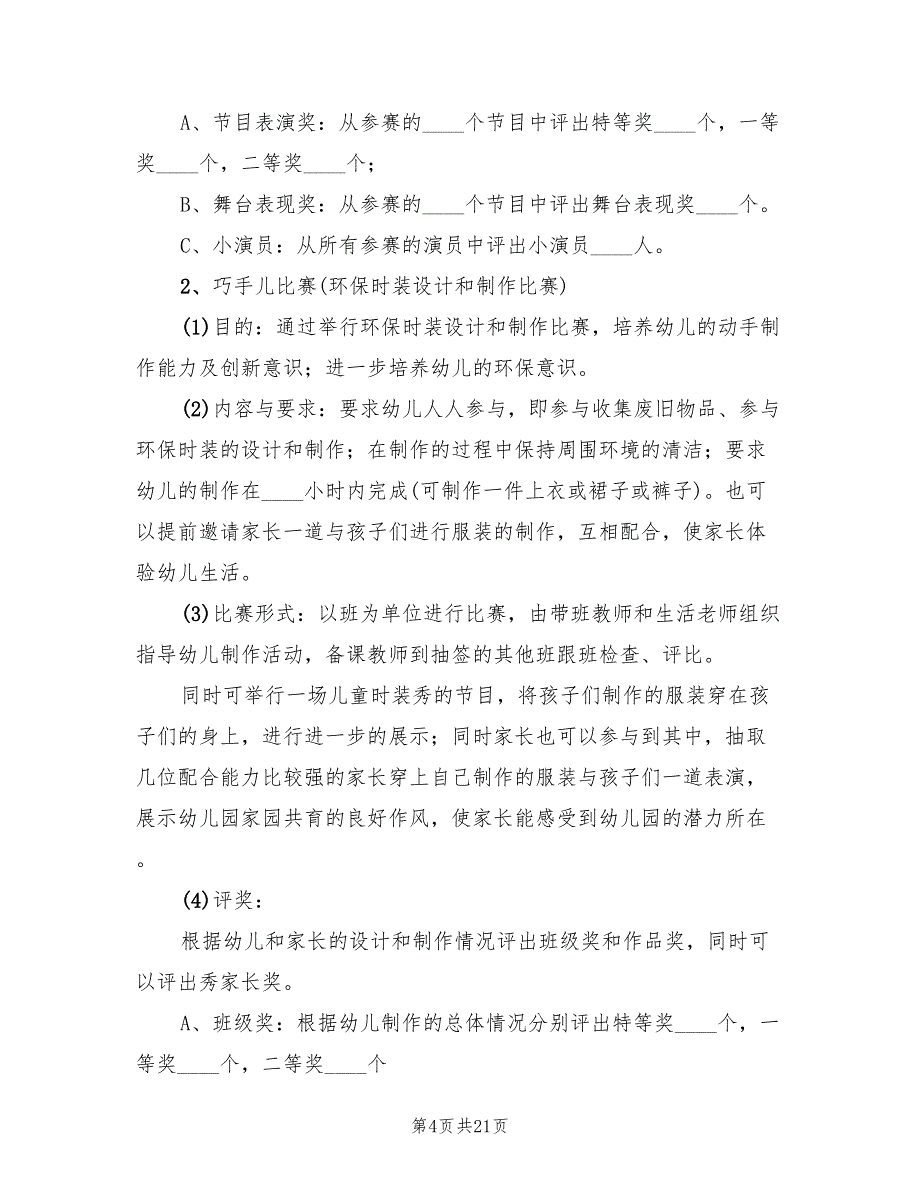 A、节目表演奖：从参赛的____个节目中评出特等奖____个，一等
奖____个，二等奖____个；
B、舞台表现奖：从参赛的____个节目中评出舞台表现奖____个。
C、小演员：从所有参赛的演员中评出小演员____人。
2、巧手儿比赛(环保时装设计和制作比赛)
(1)目的：通过举行环保时装设计和制作比赛，培养幼儿的动手制
作能力及创新意识；进一步培养幼儿的环保意识。
(2)内容与要求：要求幼儿人人参与，即参与收集废旧物品、参与
环保时装的设计和制作；在制作的过程中保持周围环境的清洁；要求
幼儿的制作在____小时内完成(可制作一件上衣或裙子或裤子)。也可
以提前邀请家长一道与孩子们进行服装的制作，互相配合，使家长体
验幼儿生活。
(3)比赛形式：以班为单位进行比赛，由带班教师和生活老师组织
指导幼儿制作活动，备课教师到抽签的其他班跟班检查、评比。
同时可举行一场儿童时装秀的节目，将孩子们制作的服装穿在孩
子们的身上，进行进一步的展示；同时家长也可以参与到其中，抽取
几位配合能力比较强的家长穿上自己制作的服装与孩子们一道表演，
展示幼儿园家园共育的良好作风，使家长能感受到幼儿园的潜力所在
。
(4)评奖：
根据幼儿和家长的设计和制作情况评出班级奖和作品奖，同时可
以评出秀家长奖。
A、班级奖：根据幼儿制作的总体情况分别评出特等奖____个，一
等奖____个，二等奖____个
第4页共21页